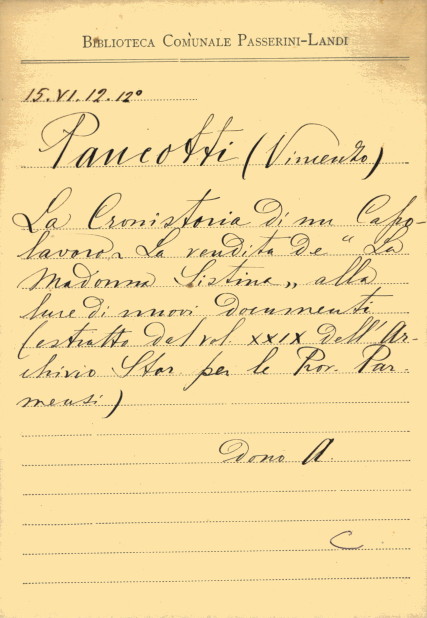 BIBLIOTECA COMUNALE PASSERINI-LANDI
15.VI.12.12º
Pancotti (Vincenzo)
La Cronistoria di un Capo-
lavoro - La vendita de "La
Madonna Sistina" alla
luce di nuovi documenti
(estratto dal vol. XXIX dell'Ar-
chivio Stor. per le Prov. Par-
mensi)
Dono A
C